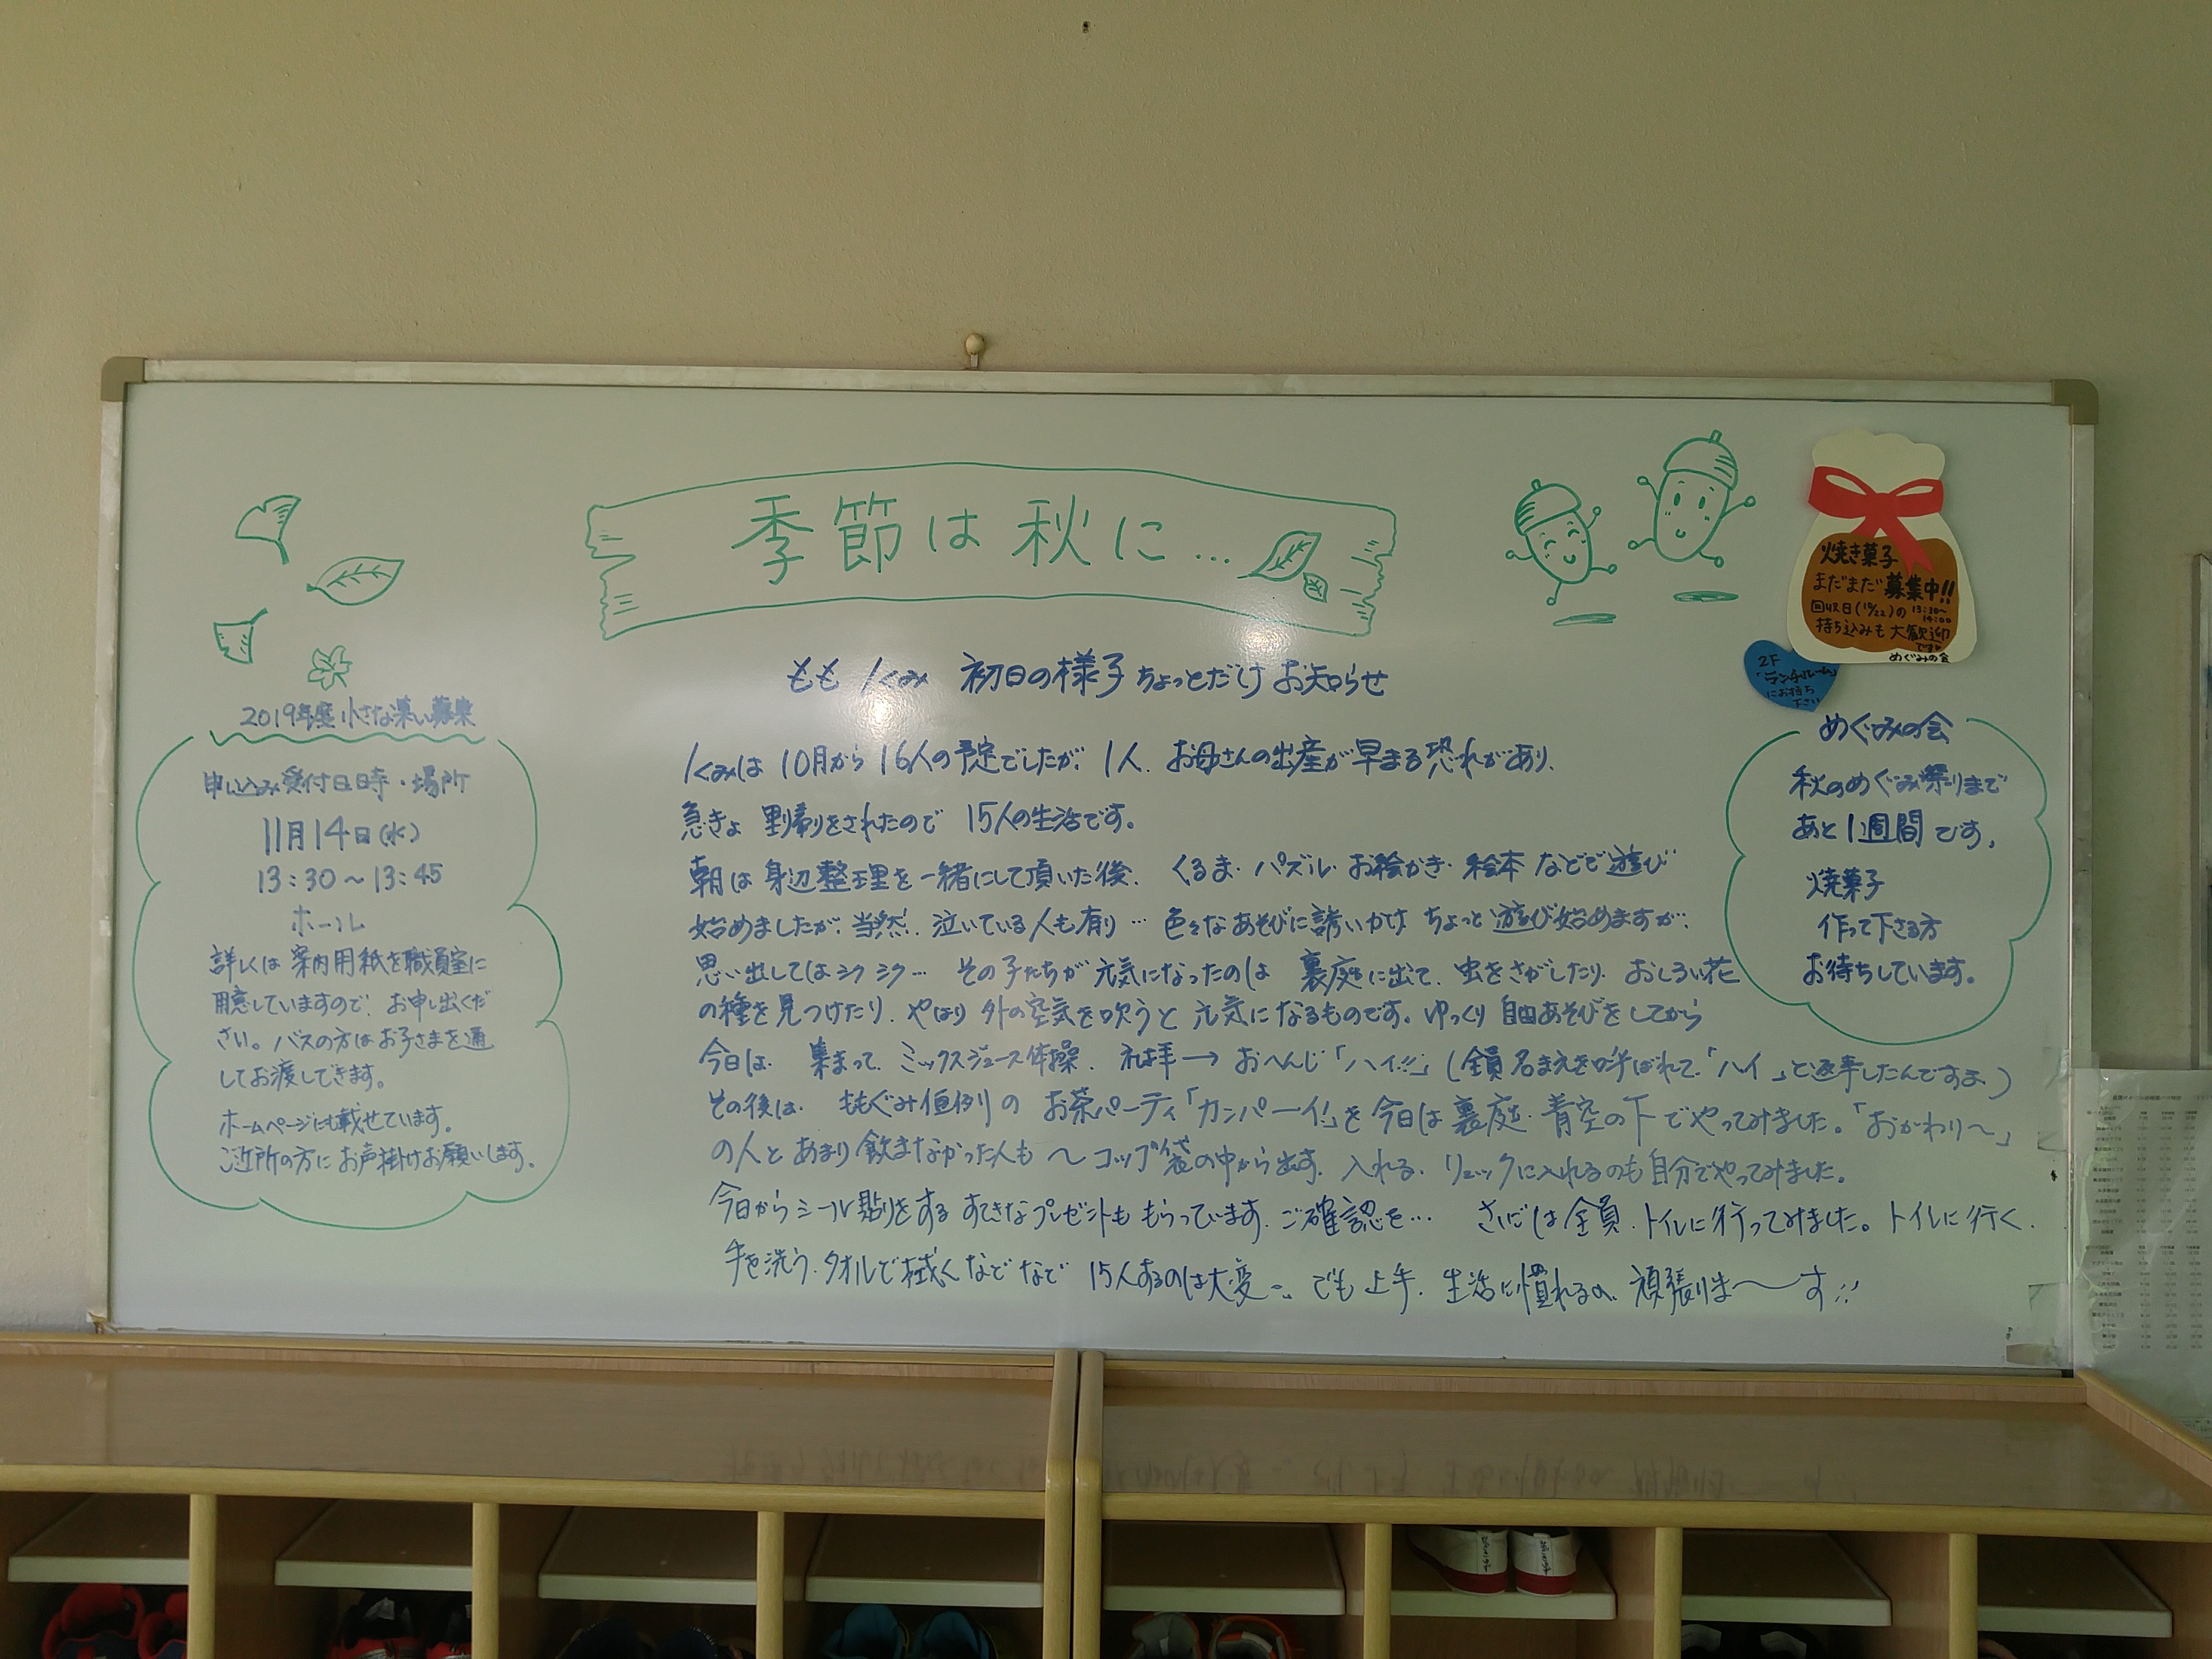 季節は秋に…
焼き菓子
まだまだ募集中!!
回収日(10/22)の 13:30〜
14:00
持ち込みも大歓迎
です
めぐみの会
2F
「ランチルーム」
にお持ち
下さい
もも1くみ 初日の様子 ちょっとだけ お知らせ
2019年度 小さな集い募集
申し込み受付日時・場所
11月14日(水)
13:30〜13:45
ホール
詳しくは 案内用紙を職員室に
用意していますので、お申し出くだ
さい。バスの方はお子さまを通
してお渡しできます。
ホームページにも載せています。
ご近所の方に お声掛けお願いします。
1くみは 10月から 16人の予定でしたが、1人、お母さんの出産が早まる恐れがあり、
急きょ 里帰りをされたので 15人の生活です。
朝は 身辺整理を一緒にして頂いた後、くるま・パズル・お絵かき・絵本などで遊び
始めましたが、当然、泣いている人も有り… 色々なあそびに誘いかけ ちょっと遊び始めますが、
思い出してはシクシク… その子たちが元気になったのは 裏庭に出て、虫をさがしたり、おしろい花
の種を見つけたり、やはり 外の空気を吹うと 元気になるものです。ゆっくり 自由あそびをしてから
今日は、集まって、ミックスジュース体操、礼拝→おへんじ「ハイ!!」(全員名まえを呼ばれて、「ハイ」と返事したんですよ)
その後は、ももぐみ恒例の お茶パーティ「カンパーイ!」を今日は裏庭、青空の下でやってみました。「おかわり〜」
の人とあまり飲まなかった人も〜コップ袋の中から出す、入れる、リュックに入れるのも自分でやってみました。
今日からシール貼りをする すてきなプレゼントももらっています。ご確認を… さらには全員、トイレに行ってみました。トイレに行く、
手を洗う、タオルで拭くなどなど 15人するのは大変… でも上手、生活に慣れるの、頑張りま〜す!!
めぐみの会
秋のめぐみ祭りまで
あと1週間です。
焼菓子
作って下さる方
お待ちしています。